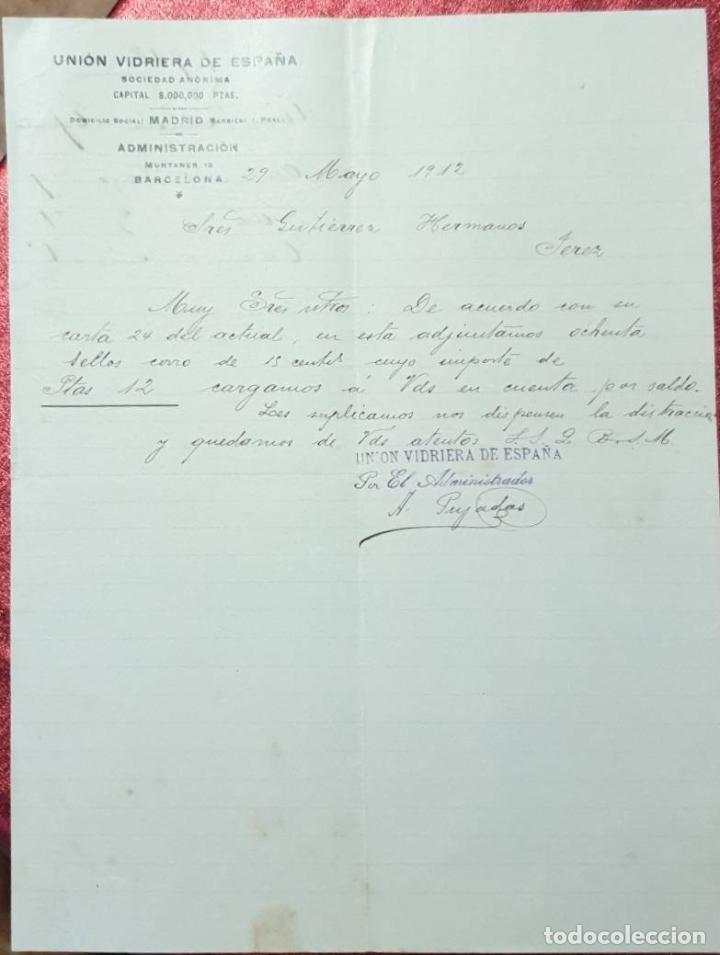 UNIÓN VIDRIERA DE ESPAÑA
SOCIEDAD ANÓNIMA
CAPITAL 8.000,000 PTAS.
DOMICILIO SOCIAL: MADRID BARBIERI 1, PRAL.
ADMINISTRACIÓN
MUNTANER 12
BARCELONA
29 Mayo 1912
Sres Gutiérrez Hermanos
Jerez
Muy Sres ntros: De acuerdo con su
carta 24 del actual, en esta adjuntamos ochenta
sellos corro de 15 cents cuyo importe de
Ptas 12 cargamos á Vds en cuenta por saldo.
Les suplicamos nos dispensen la distracción
y quedamos de Vds atentos S. S. Q B. S. M.
UNION VIDRIERA DE ESPAÑA
Por El Administrador
A. Pujadas
todocoleccion